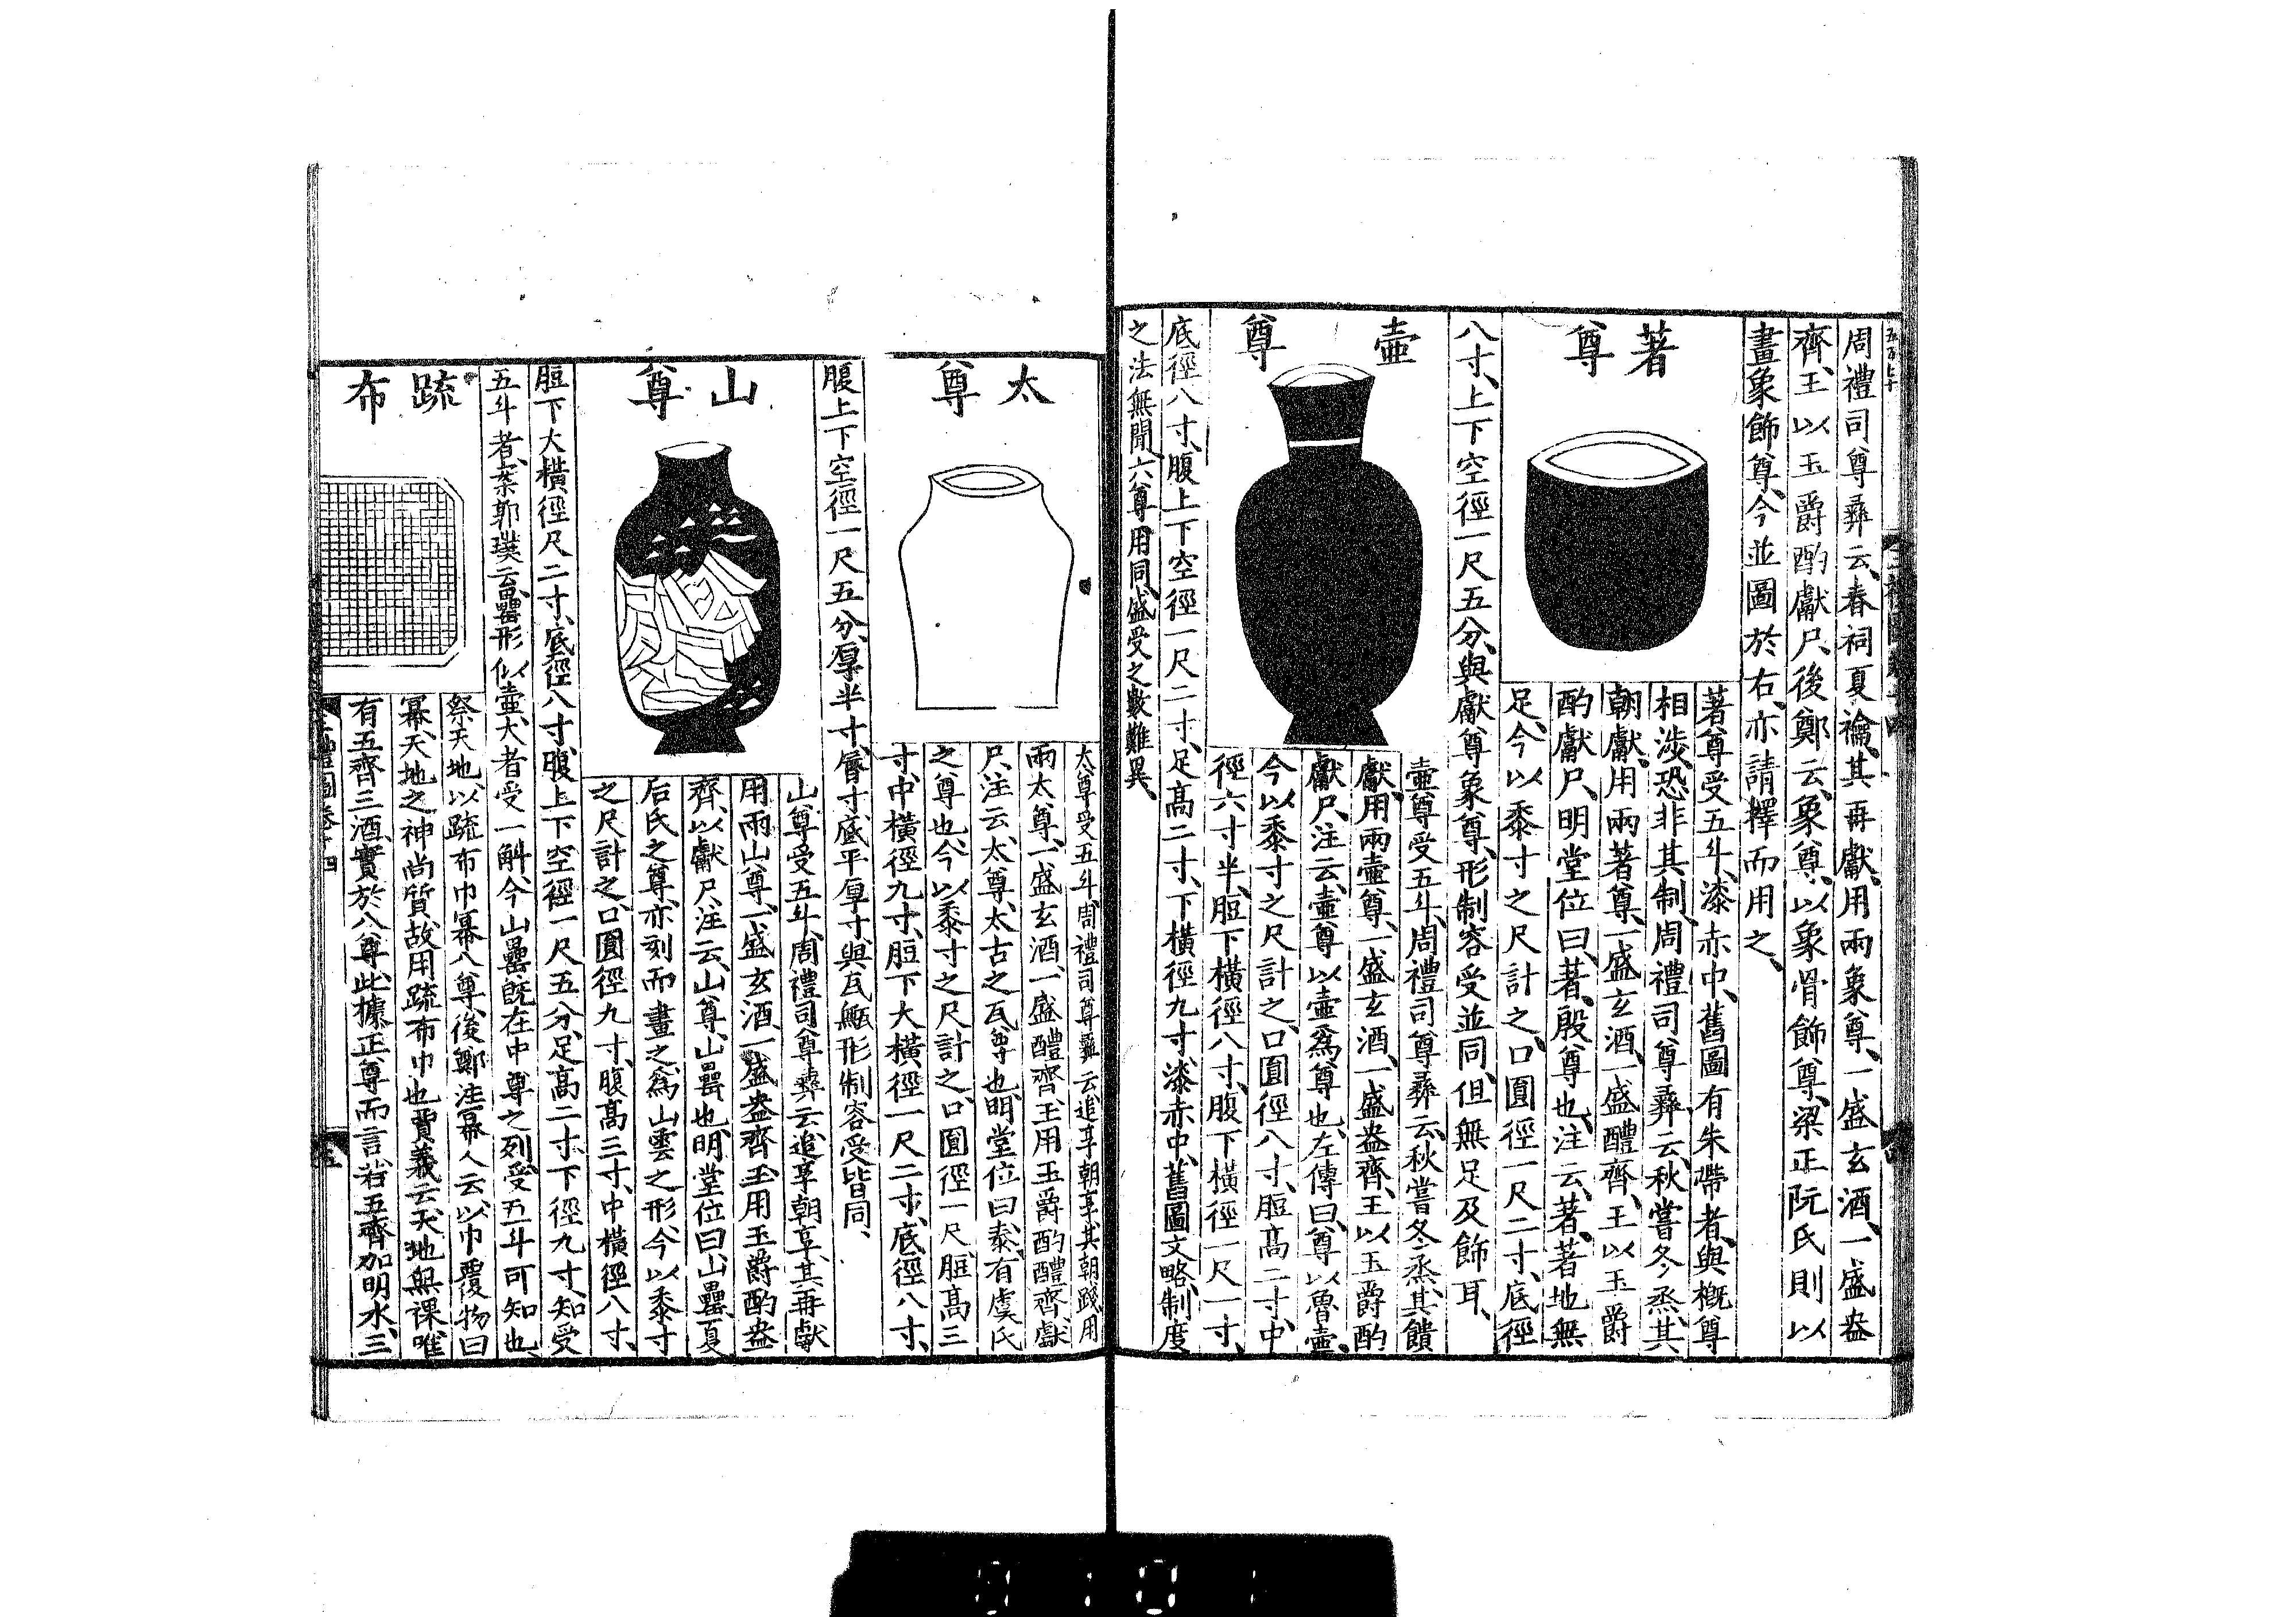 周禮司尊彝云春祠夏禴其再獻用兩象尊一盛玄酒一盛盎
齊王以玉爵酌獻尸後鄭云象尊以象骨飾尊梁正阮氏則以
畫象飾尊今並圖於右亦請擇而用之
著尊
著尊受五斗漆赤中舊圖有朱帶者與概尊
相涉恐非其制周禮司尊彝云秋嘗冬烝其
朝獻用兩著尊一盛玄酒一盛醴齊王以玉爵
酌獻尸明堂位曰著殷尊也注云著著地無
足今以黍寸之尺計之口圓徑一尺二寸底徑
八寸上下空徑一尺五分與獻尊象尊形制容受並同但無足及飾耳
壺尊
壺尊受五斗周禮司尊彝云秋嘗冬烝其饋
獻用兩壺尊一盛玄酒一盛盎齊王以玉爵酌
獻尸注云壺尊以壺為尊也左傳曰尊以魯壺
今以黍寸之尺計之口圓徑八寸脰高二寸中
徑六寸半脰下橫徑八寸腹下橫徑一尺一寸
底徑八寸腹上下空徑一尺二寸足高二寸下橫徑九寸漆赤中舊圖文略制度
之法無聞六尊用同盛受之數難異
太尊
太尊受五斗周禮司尊彝云追享朝享其朝踐用
兩太尊一盛玄酒一盛醴齊王用玉爵酌醴齊獻
尸注云太尊太古之瓦尊也明堂位曰泰有虞氏
之尊也今以黍寸之尺計之口圓徑一尺脰高三
寸中橫徑九寸脰下大橫徑一尺二寸底徑八寸
腹上下空徑一尺五分厚半寸脣寸底平厚寸與瓦甒形制容受皆同
山尊
山尊受五斗周禮司尊彝云追享朝享其再獻
用兩山尊一盛玄酒一盛盎齊王用玉爵酌盎
齊以獻尸注云山尊山罍也明堂位曰山罍夏
后氏之尊亦刻而畫之為山雲之形今以黍寸
之尺計之口圓徑九寸腹高三寸中橫徑八寸
脰下大橫徑尺二寸底徑八寸腹上下空徑一尺五分足高二寸下徑九寸知受
五斗者案郭璞云罍形似壺大者受一斛今山罍既在中尊之列受五斗可知也
疏布
祭天地以疏布巾冪八尊後鄭注冪人云以巾覆物曰
冪天地之神尚質故用疏布巾也賈義云天地無祼唯
有五齊三酒實於八尊此據正尊而言若五齊加明水三
三禮圖卷十四
五